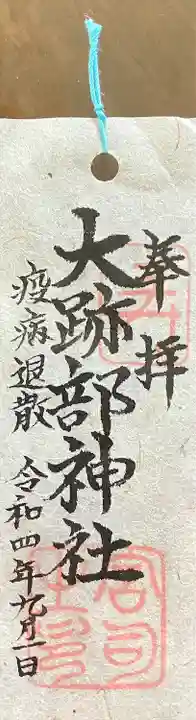 奉拝
大跡部神社
疫病退散 令和四年九月一日